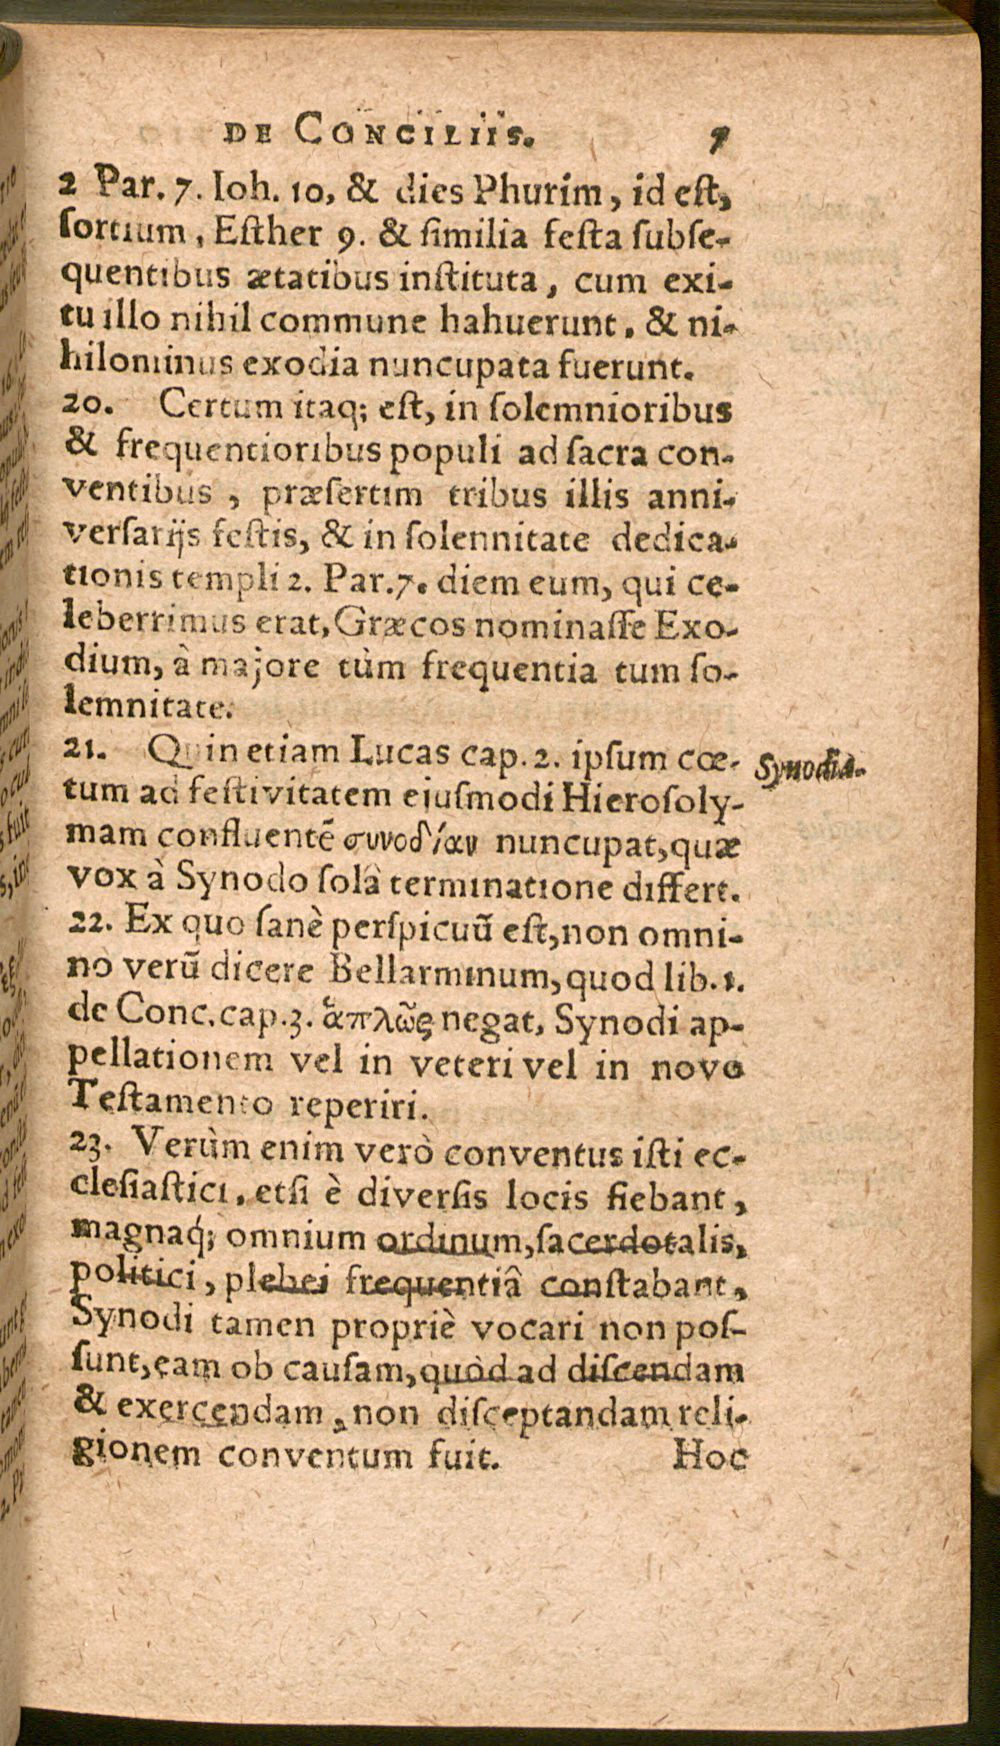 DE CONCILIIS. 9
2 Par. 7. Ioh. 10, & dies Phurim, id eſt,
ſortium, Eſther 9. & ſimilia feſta ſubſe-
quentibus ætatibus inſtituta, cum exi-
tu illo nihil commune hahuerunt, & ni-
hilominus exodia nuncupata fuerunt.
20. Certum itaq; eſt, in ſolemnioribus
& frequentioribus populi ad ſacra con-
ventibus, præſertim tribus illis anni-
verſarijs feſtis, & in ſolennitate dedica-
tionis templi 2. Par. 7. diem eum, qui ce-
leberrimus erat, Græcos nominaſſe Exo-
dium, à majore tùm frequentia tum ſo-
lemnitate.
21. Quin etiam Lucas cap. 2. ipſum cœ-
Synodia.
tum ad feſtivitatem ejuſmodi Hieroſoly-
mam confluentẽ συνοδίαν nuncupat, quæ
vox à Synodo ſolâ terminatione differt.
22. Ex quo ſanè perſpicuũ eſt, non omni-
nò verũ dicere Bellarminum, quod lib. 1.
de Conc. cap. 3. ἁπλῶς negat, Synodi ap-
pellationem vel in veteri vel in novo
Teſtamento reperiri.
23. Verùm enim verò conventus iſti ec-
cleſiaſtici, etſi è diverſis locis fiebant,
magnaq́; omnium ordinum, ſacerdotalis,
politici, plebei frequentiâ conſtabant,
Synodi tamen propriè vocari non poſ-
ſunt, eam ob cauſam, quòd ad diſcendam
& exercendam, non diſceptandam reli-
gionem conventum fuit. Hoc